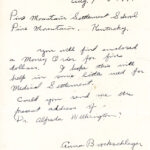 Pine Mountain Settlement School
Pine Mountain, Kentucky.
You will find enclosed
a Money Order for five
dollars. I hope this will
help in some little need for
Medical Settlement.
Could you send me the
present address of
Dr. Alfreda Withington?
Anna